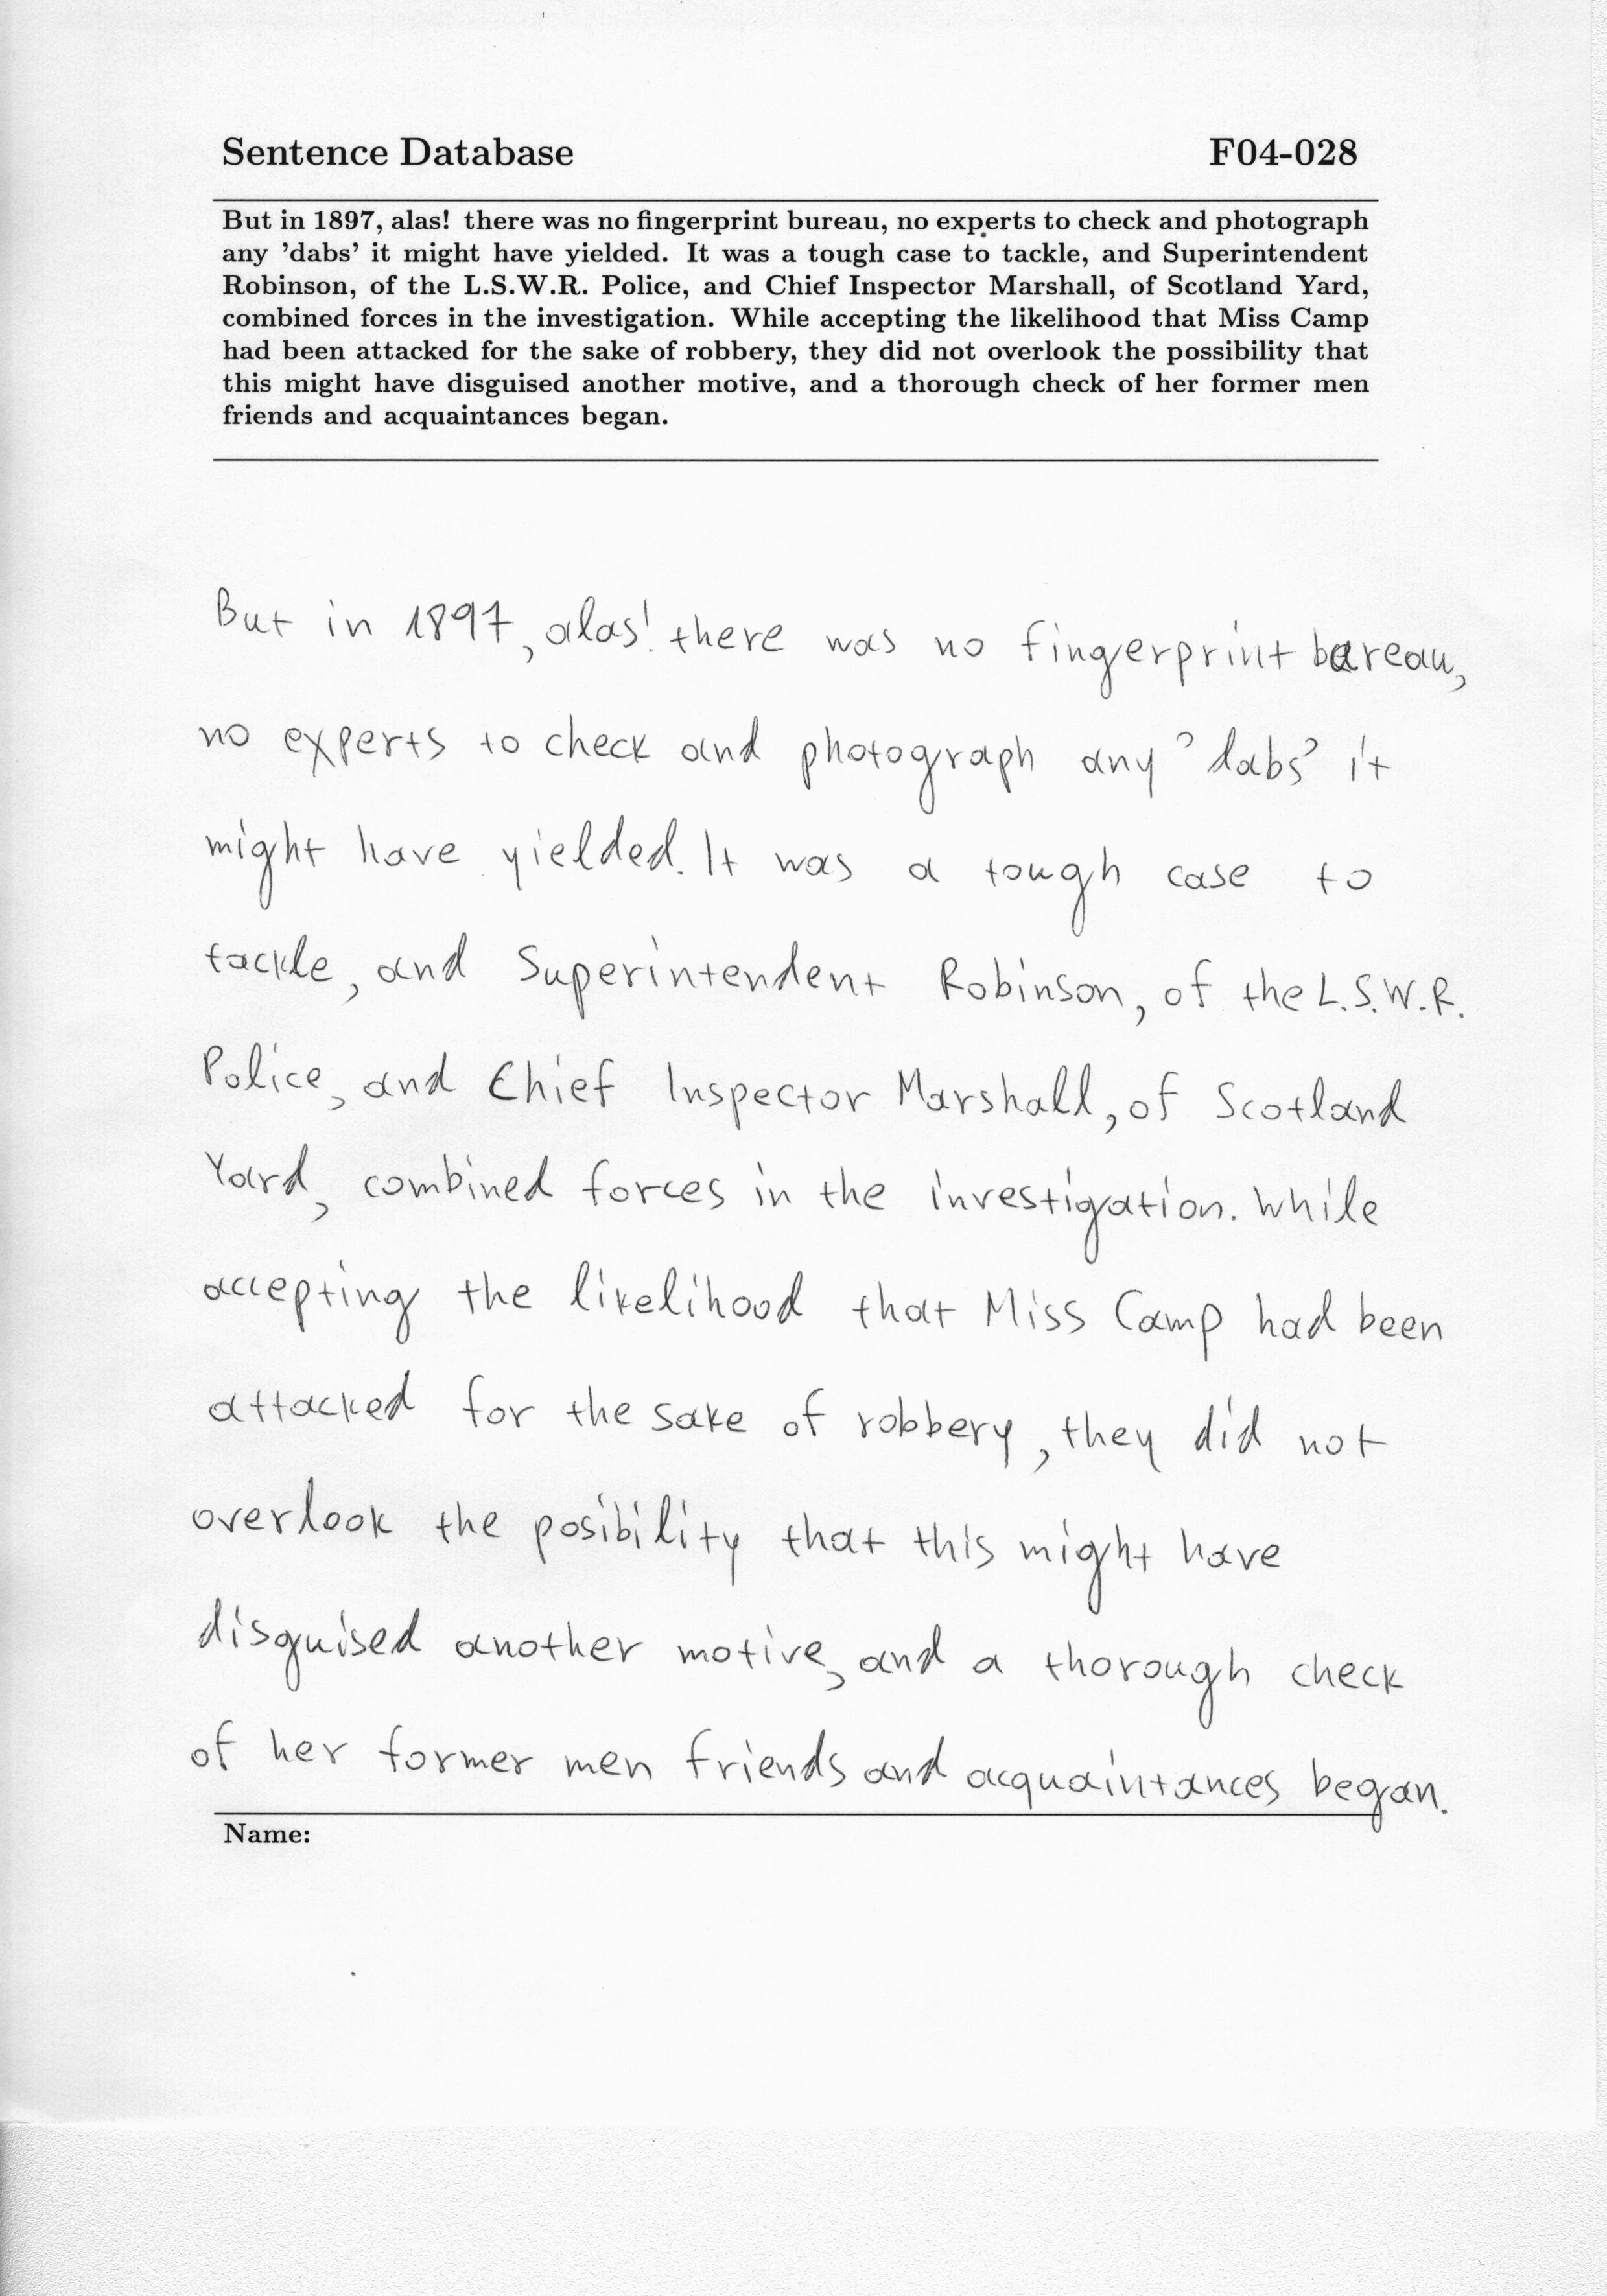 Sentence Database F04-028
But in 1897, alas! there was no fingerprint bureau, no experts to check and photograph
any 'dabs' it might have yielded. It was a tough case to tackle, and Superintendent
Robinson, of the L.S.W.R. Police, and Chief Inspector Marshall, of Scotland Yard,
combined forces in the investigation. While accepting the likelihood that Miss Camp
had been attacked for the sake of robbery, they did not overlook the possibility that
this might have disguised another motive, and a thorough check of her former men
friends and acquaintances began.
But in 1897, alas! there was no fingerprint bareau,
no experts to check and photograph any 'dabs' it
might have yielded. It was a tough case to
tackle, and Superintendent Robinson, of the L.S.W.R.
Police, and Chief Inspector Marshall, of Scotland
Yard, combined forces in the investigation. While
accepting the likelihood that Miss Camp had been
attacked for the sake of robbery, they did not
overlook the posibility that this might have
disguised another motive, and a thorough check
of her former men friends and acquaintances began.
Name: